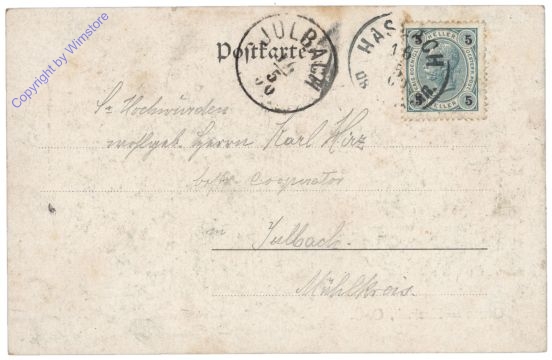 Copyright by Wimstore
Postkarte
JULBACH
HAS
CH
5 HELLER 5
5 HELLER 5
Sr Hochwürden
wohlgeb. Herrn Karl
Cooperator
in Julbach.
Mühlkreis.